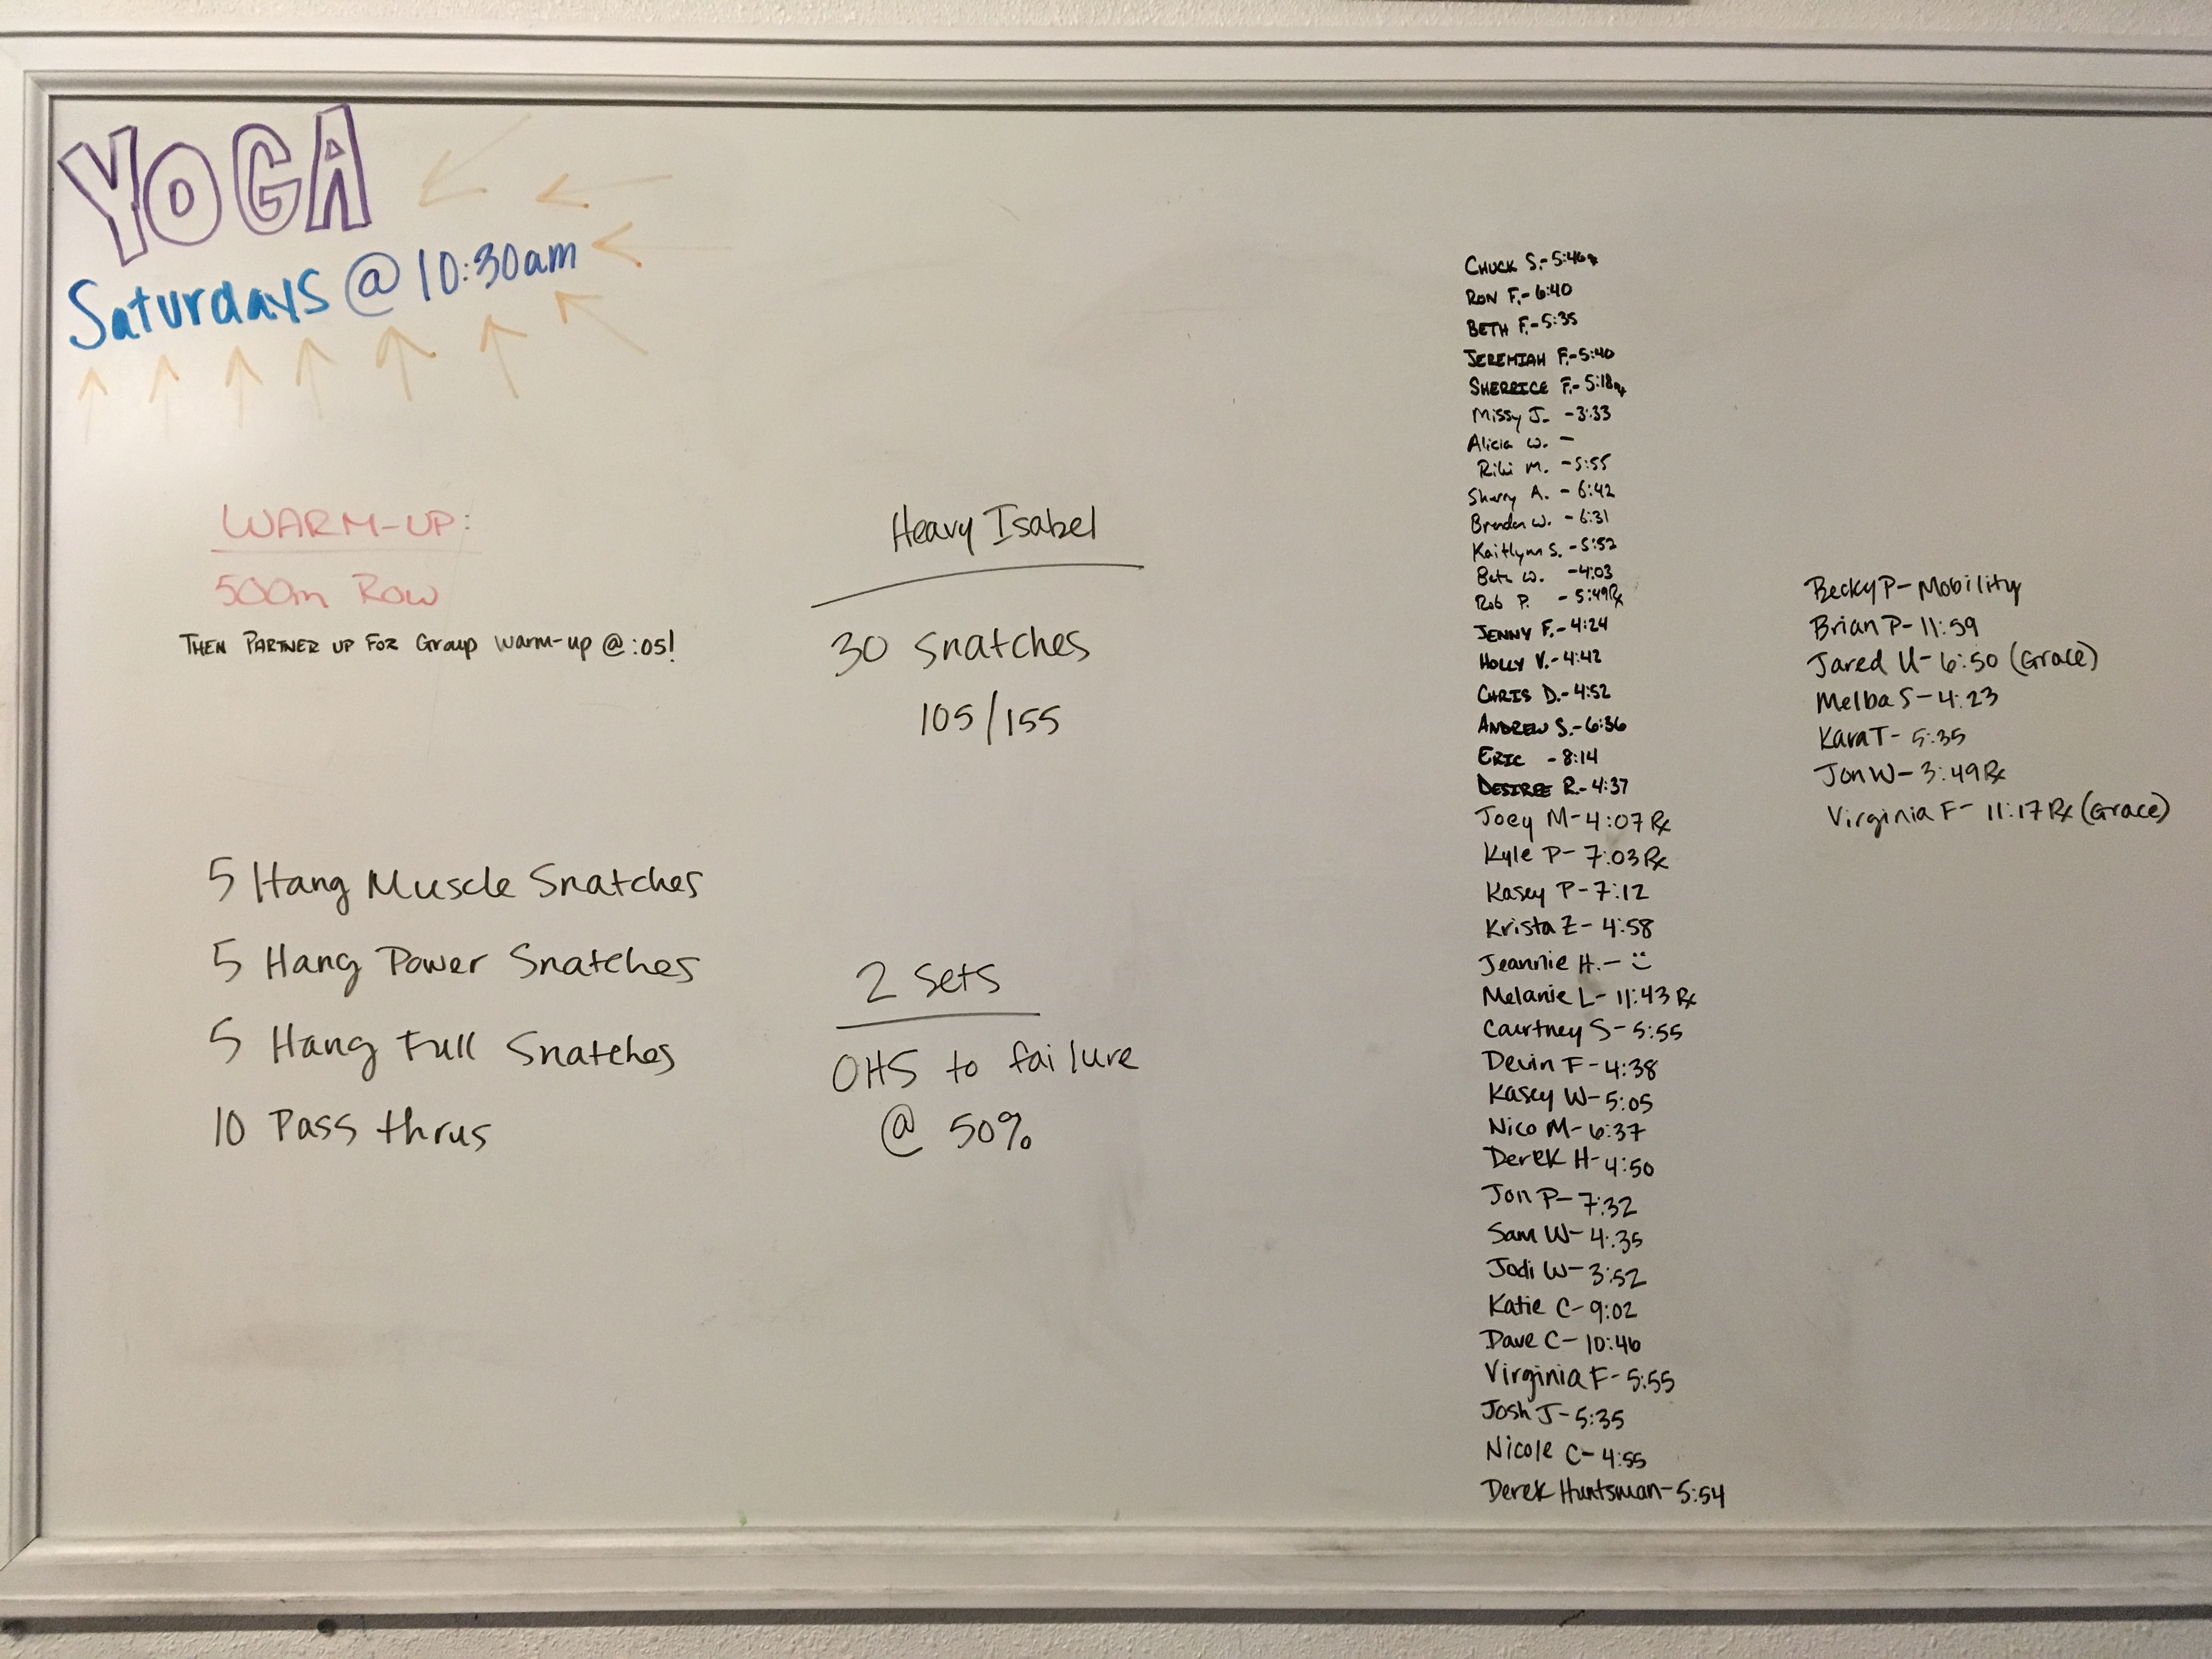 YOGA
Saturdays @ 10:30am
WARM-UP:
500m Row
THEN PARTNER UP FOR Group warm-up @ :05!
5 Hang Muscle Snatches
5 Hang Power Snatches
5 Hang Full Snatches
10 Pass thrus
Heavy Isabel
30 Snatches
105/155
2 sets
OHS to failure
@ 50%
CHUCK S.- 5:46
RON F.- 6:40
BETH F.- 5:35
JEREMIAH F.- 5:40
SHERRICE F.- 5:18
Missy J. - 3:33
Alicia W. -
Riki M. - 5:55
Sherry A. - 6:42
W. - 6:31
Kaitlynn S. - 5:52
W. - 4:03
Rob P. - 5:49 Rx
JENNY F.- 4:24
HOLLY V.- 4:42
CHRIS D.- 4:52
ANDREW S.- 6:36
ERIC - 8:14
DESIREE R.- 4:37
Joey M- 4:07 Rx
Kyle P- 7:03 Rx
Kasey P- 7:12
Krista Z- 4:58
Jeannie H.-
Melanie L- 11:43 Rx
Courtney S- 5:55
Devin F- 4:38
Kasey W- 5:05
Nico M- 6:37
Derek H- 4:50
Jon P- 7:32
Sam W- 4:35
Jodi W- 3:52
Katie C- 9:02
Dave C- 10:46
Virginia F- 5:55
Josh J- 5:35
Nicole C- 4:55
Derek Huntsman- 5:54
Becky P- Mobility
Brian P- 11:59
Jared U- 6:50 (Grace)
Melba S- 4:23
Kara T- 5:35
Jon W- 3:49 Rx
Virginia F- 11:17 Rx (Grace)